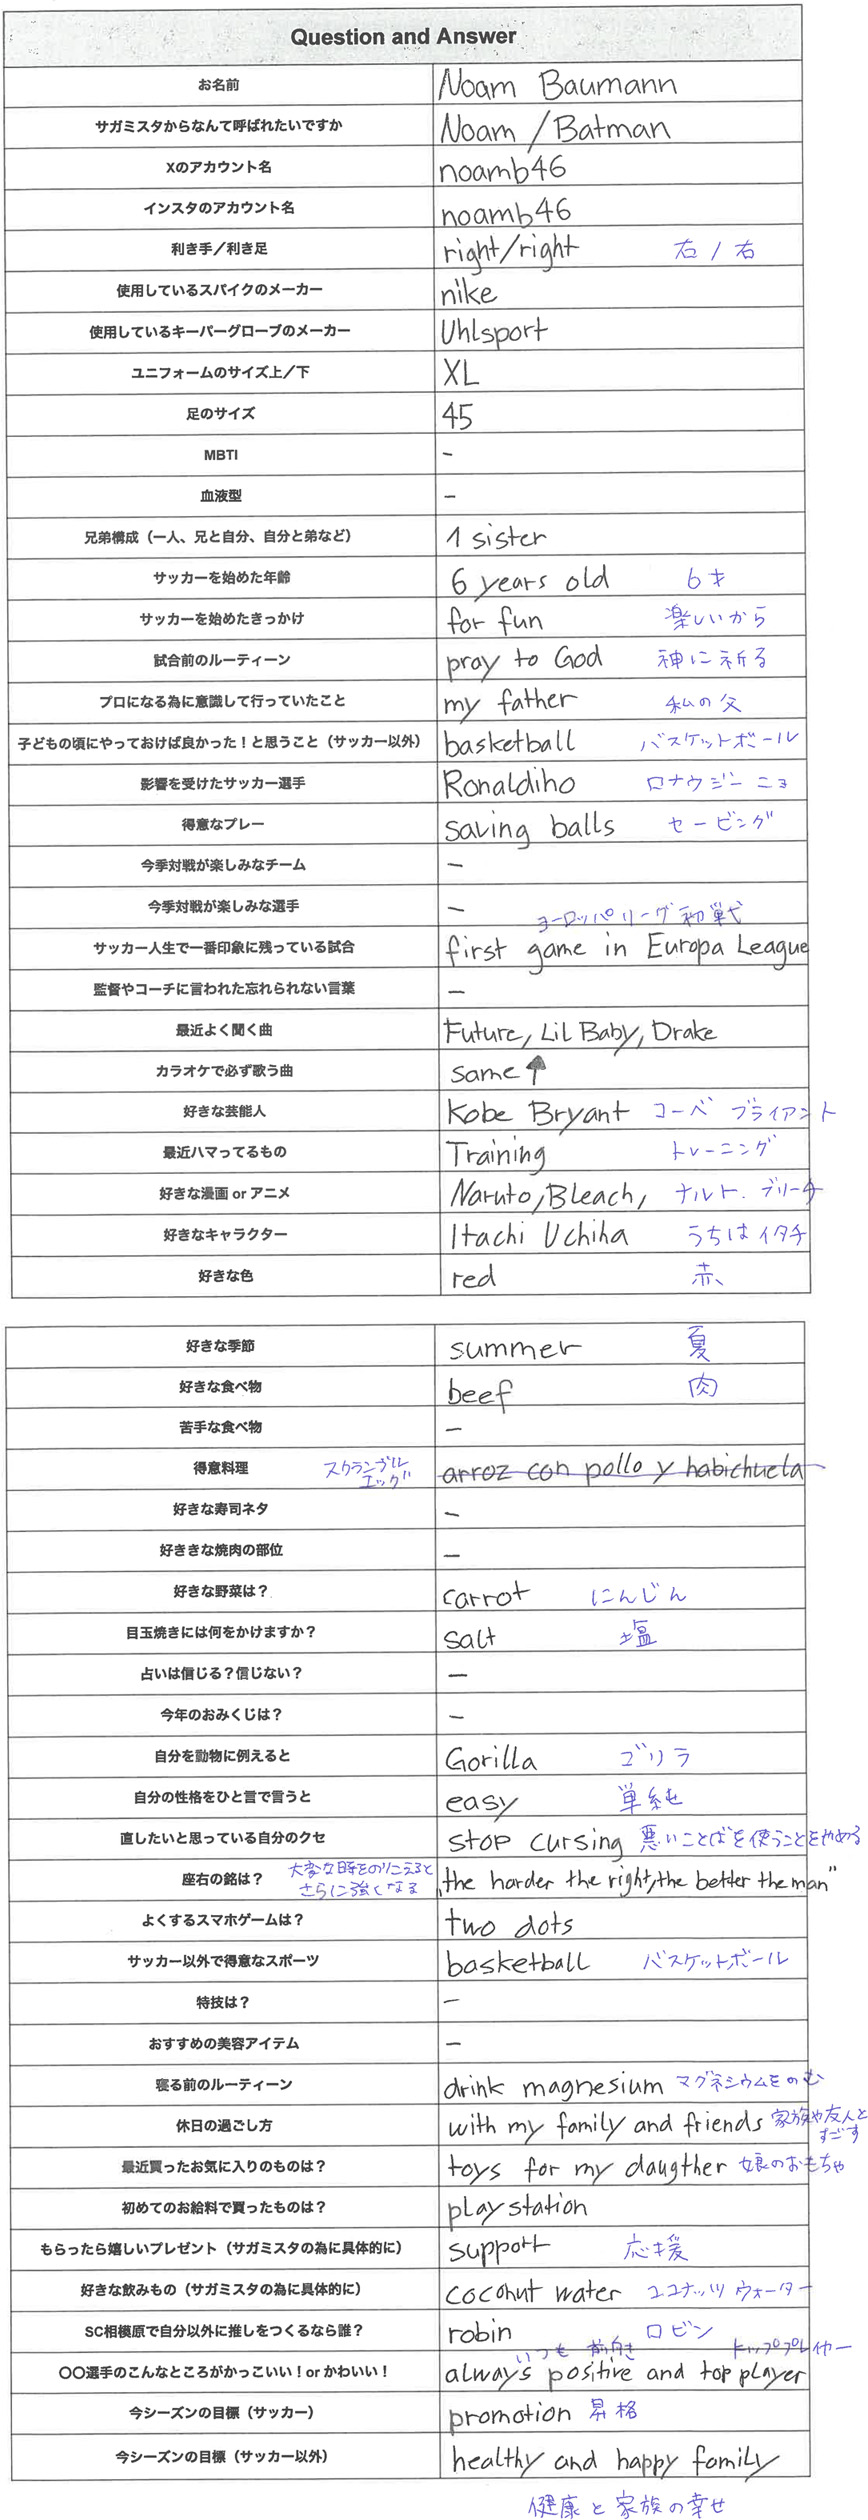 Question and Answer
お名前 Noam Baumann
サガミスタからなんて呼ばれたいですか Noam / Batman
Xのアカウント名 noamb46
インスタのアカウント名 noamb46
利き手／利き足 right/right 右 / 右
使用しているスパイクのメーカー nike
使用しているキーパーグローブのメーカー Uhlsport
ユニフォームのサイズ上／下 XL
足のサイズ 45
MBTI -
血液型 -
兄弟構成（一人、兄と自分、自分と弟など） 1 sister
サッカーを始めた年齢 6 years old 6才
サッカーを始めたきっかけ for fun 楽しいから
試合前のルーティーン pray to God 神に祈る
プロになる為に意識して行っていたこと my father 私の父
子どもの頃にやっておけば良かった！と思うこと（サッカー以外） basketball バスケットボール
影響を受けたサッカー選手 Ronaldiho ロナウジーニョ
得意なプレー saving balls セービング
今季対戦が楽しみなチーム -
今季対戦が楽しみな選手 -
ヨーロッパリーグ初戦
サッカー人生で一番印象に残っている試合 first game in Europa League
監督やコーチに言われた忘れられない言葉 -
最近よく聞く曲 Future, Lil Baby, Drake
カラオケで必ず歌う曲 same ↑
好きな芸能人 Kobe Bryant コーベ ブライアント
最近ハマってるもの Training トレーニング
好きな漫画 or アニメ Naruto, Bleach, ナルト. ブリーチ
好きなキャラクター Itachi Uchiha うちはイタチ
好きな色 red 赤
好きな季節 summer 夏
好きな食べ物 beef 肉
苦手な食べ物 -
得意料理 スクランブル エッグ arroz con pollo y habichuela
好きな寿司ネタ -
好ききな焼肉の部位 -
好きな野菜は？ carrot にんじん
目玉焼きには何をかけますか？ salt 塩
占いは信じる？信じない？ -
今年のおみくじは？ -
自分を動物に例えると Gorilla ゴリラ
自分の性格をひと言で言うと easy 単純
直したいと思っている自分のクセ stop cursing 悪いことばを使うことをやめる
座右の銘は？ 大変な時をのりこえると さらに強くなる „the harder the right, the better the man"
よくするスマホゲームは？ two dots
サッカー以外で得意なスポーツ basketball バスケットボール
特技は？ -
おすすめの美容アイテム -
寝る前のルーティーン drink magnesium マグネシウムをのむ
休日の過ごし方 with my family and friends 家族や友人と すごす
最近買ったお気に入りのものは？ toys for my daugther 娘のおもちゃ
初めてのお給料で買ったものは？ playstation
もらったら嬉しいプレゼント（サガミスタの為に具体的に） support 応援
好きな飲みもの（サガミスタの為に具体的に） coconut water ココナッツ ウォーター
SC相模原で自分以外に推しをつくるなら誰？ robin ロビン
いつも 前向き トッププレイヤー
〇〇選手のこんなところがかっこいい！or かわいい！ always positive and top player
今シーズンの目標（サッカー） promotion 昇格
今シーズンの目標（サッカー以外） healthy and happy family
健康と家族の幸せ